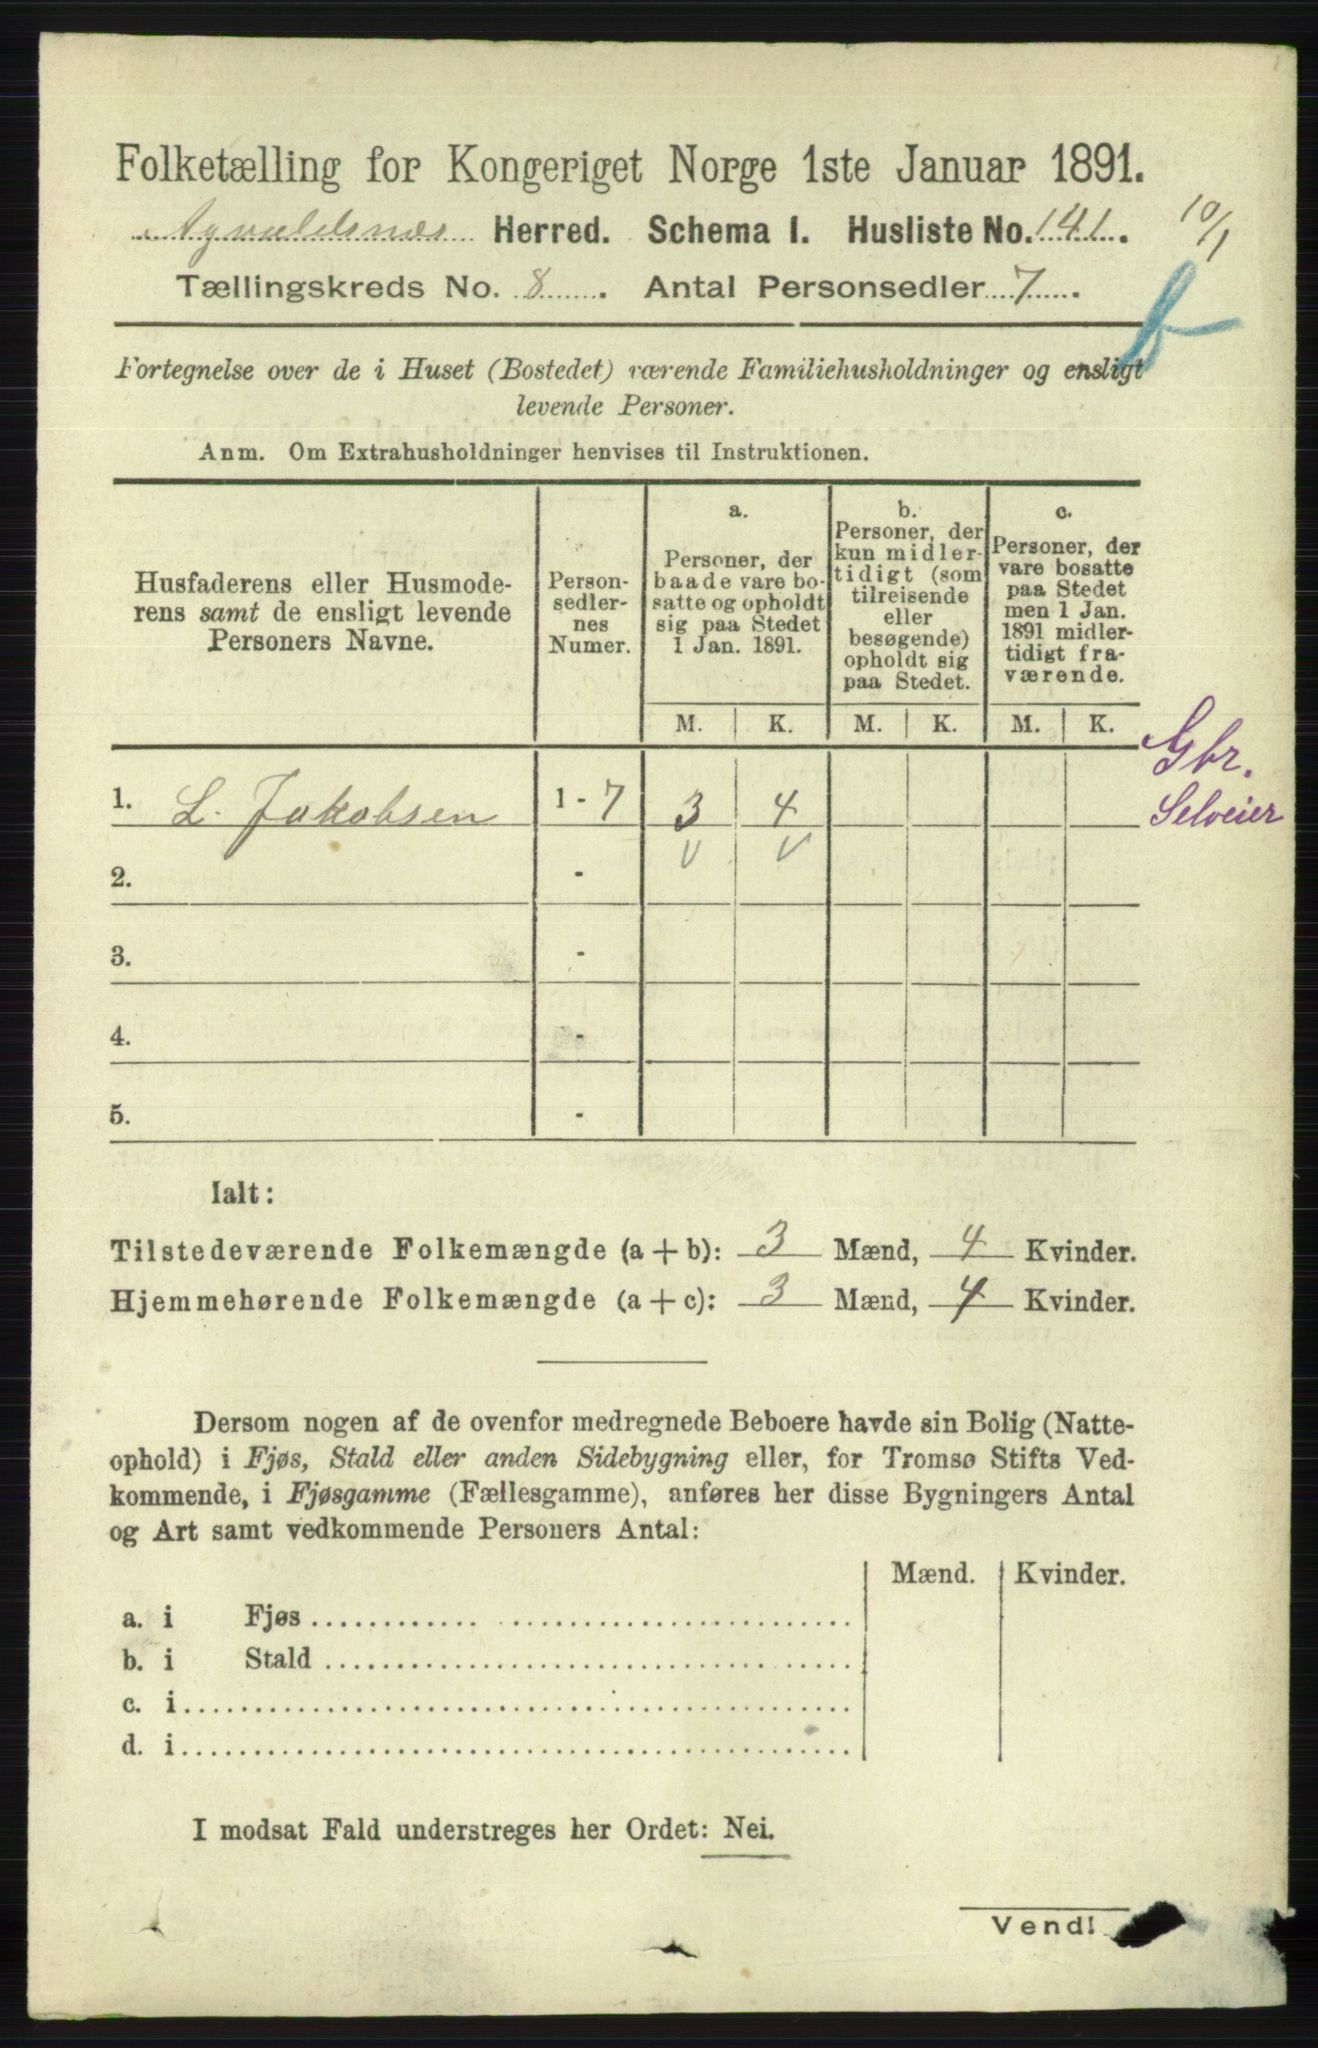 Folketælling for Kongeriget Norge 1ste Januar 1891.
Agvaldsnæs Herred. Schema I. Husliste No. 141. 10/1
Tællingskreds No. 8. Antal Personsedler 7.
b
Fortegnelse over de i Huset (Bostedet) værende Familiehusholdninger og ensligt
levende Personer.
Anm. Om Extrahusholdninger henvises til Instruktionen.
Husfaderens eller Husmode-
rens samt de ensligt levende
Personers Navne.
Person-
sedler-
nes
Numer.
a.
Personer, der
baade vare bo-
satte og opholdt
sig paa Stedet
1 Jan. 1891.
b.
Personer, der
kun midler-
tidigt (som
tilreisende
eller
besøgende)
opholdt sig
paa Stedet.
c.
Personer, der
vare bosatte
paa Stedet
men 1 Jan.
1891 midler-
tidigt fra-
værende.
M. K. M. K. M. K.
1. L. Jakobsen 1 - 7 3 4
Gbr.
Selveier
2. - v v
3. -
4. -
5. -
Ialt:
Tilstedeværende Folkemængde (a + b): 3 Mænd, 4 Kvinder.
Hjemmehørende Folkemængde (a + c): 3 Mænd, 4 Kvinder.
Dersom nogen af de ovenfor medregnede Beboere havde sin Bolig (Natte-
ophold) i Fjøs, Stald eller anden Sidebygning eller, for Tromsø Stifts Ved-
kommende, i Fjøsgamme (Fællesgamme), anføres her disse Bygningers Antal
og Art samt vedkommende Personers Antal:
Mænd. Kvinder.
a. i Fjøs
b. i Stald
c. i
d. i
I modsat Fald understreges her Ordet: Nei.
Vend!